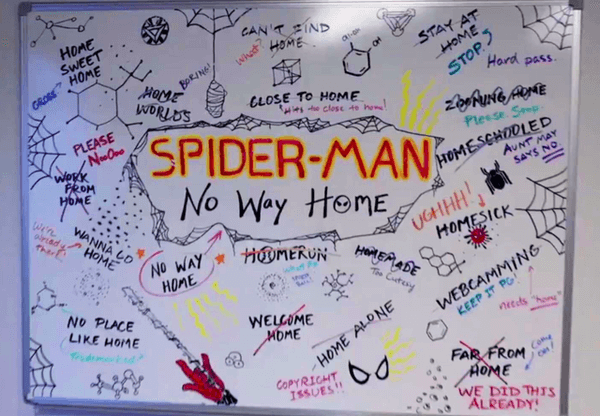 HOME
SWEET
HOME
GROSS!
CAN'T FIND
HOME
What?
STAY AT
HOME
STOP.
Hard pass.
BORING!
HOME
WORLDS
CLOSE TO HOME
Hits too close to home!
ZOONING HOME
Please. Stop.
PLEASE
NooOoo
HOMESCHOOLED
AUNT MAY
SAYS NO
SPIDER-MAN
No Way Home
WORK
FROM
HOME
UGHHH!
HOMESICK
We're already there!
WANNA GO
HOME
NO WAY
HOME
HOOMERUN
HOMEMADE
Too Cutesy
WEBCAMMING
KEEP IT PG!
needs "home"
NO PLACE
LIKE HOME
Trademarked?
WELCOME
HOME
HOME ALONE
COPYRIGHT
ISSUES!!
FAR FROM
HOME
Come on!
WE DID THIS
ALREADY!